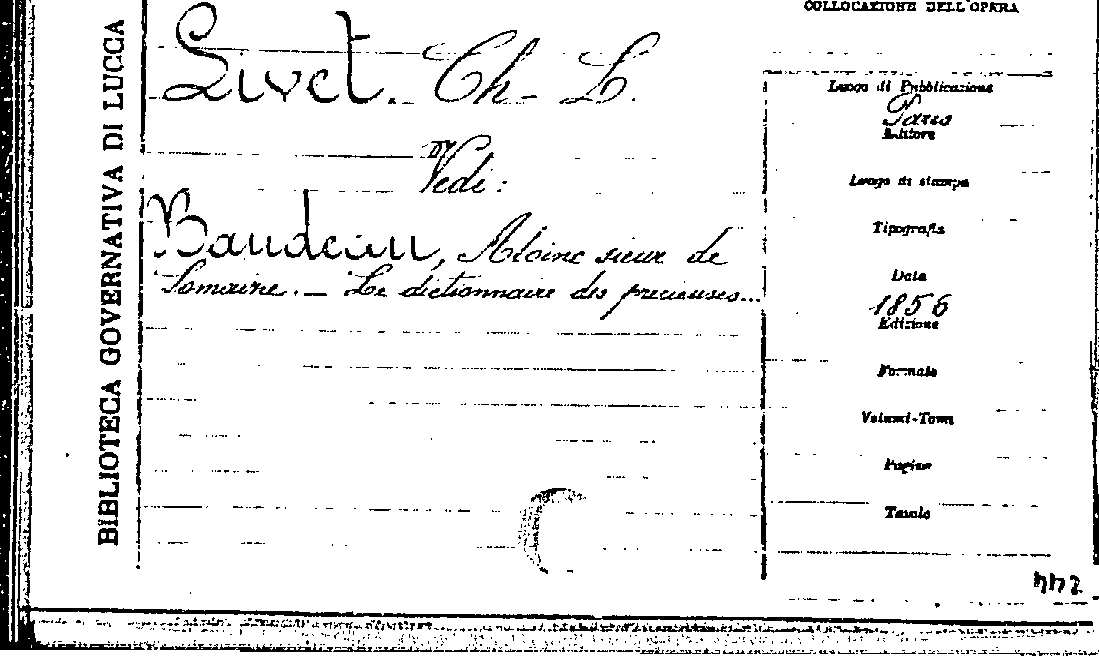 BIBLIOTECA GOVERNATIVA DI LUCCA
COLLOCAZIONE DELL'OPERA
Livet. Ch- L.
Vedi:
Baudeau, Aloine sieur de
Somaize. — Le dictionnaire des precieuses...
Luogo di Pubblicazione
Paris
Editore
Luogo di stampa
Tipografia
Data
1856
Edizione
Formato
Volumi-Tomi
Pagine
Tavole